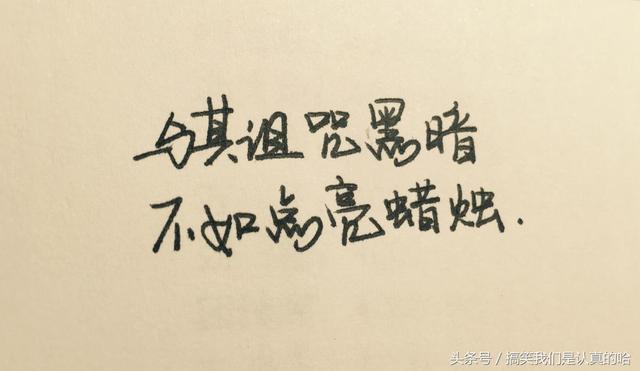 与其诅咒黑暗
不如点亮蜡烛.
头条号/搞笑我们是认真的哈